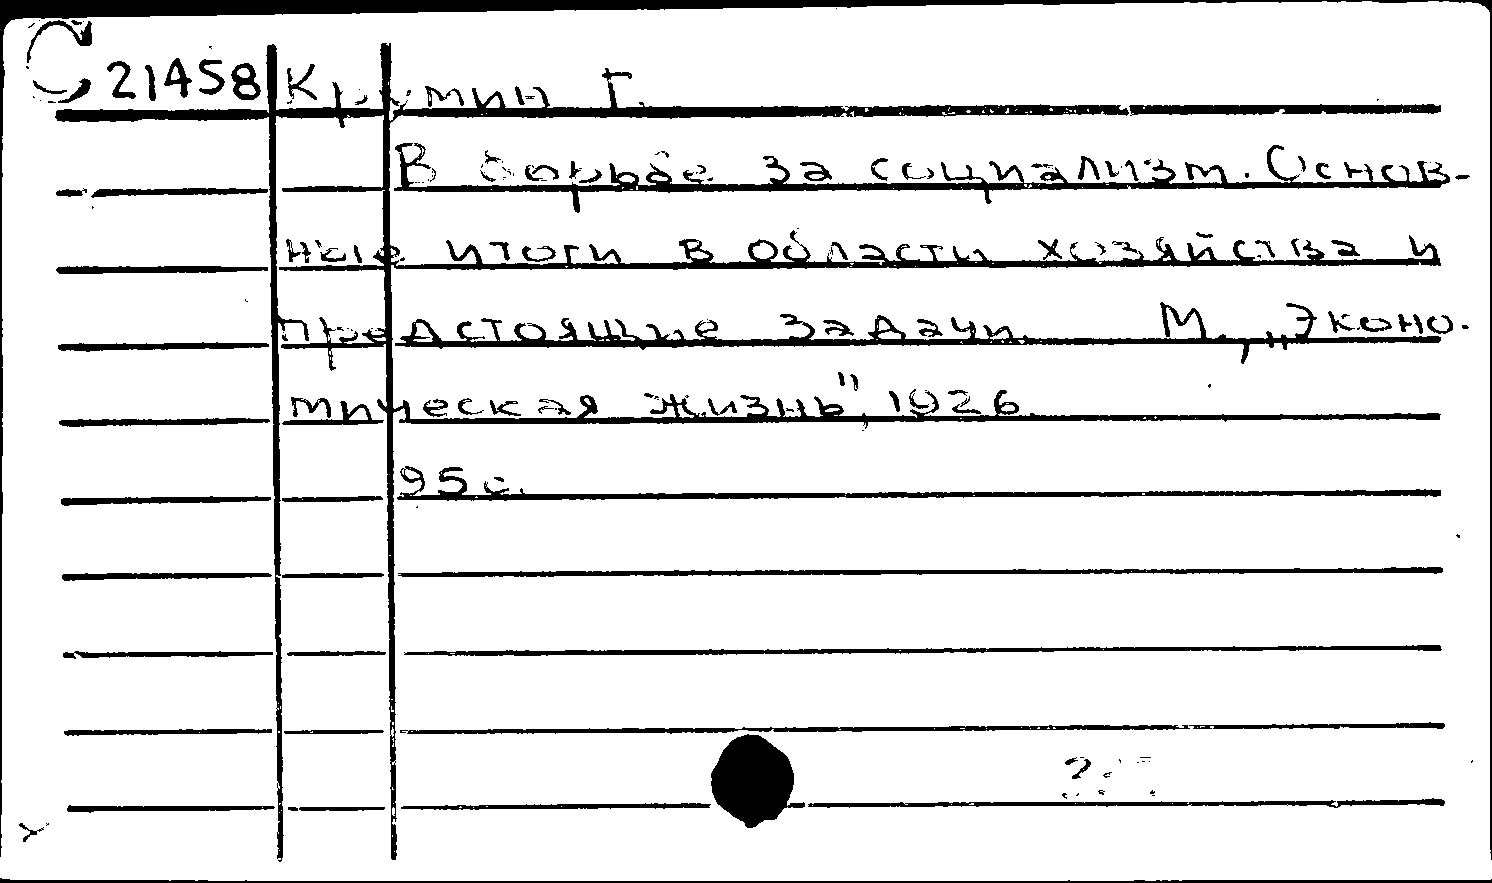 С 21458 Крумин Г.
В борьбе за социализм. Основ-
ные итоги в области хозяйства и
предстоящие задачи. М., „Эконо-
мическая жизнь", 1926.
95 с.